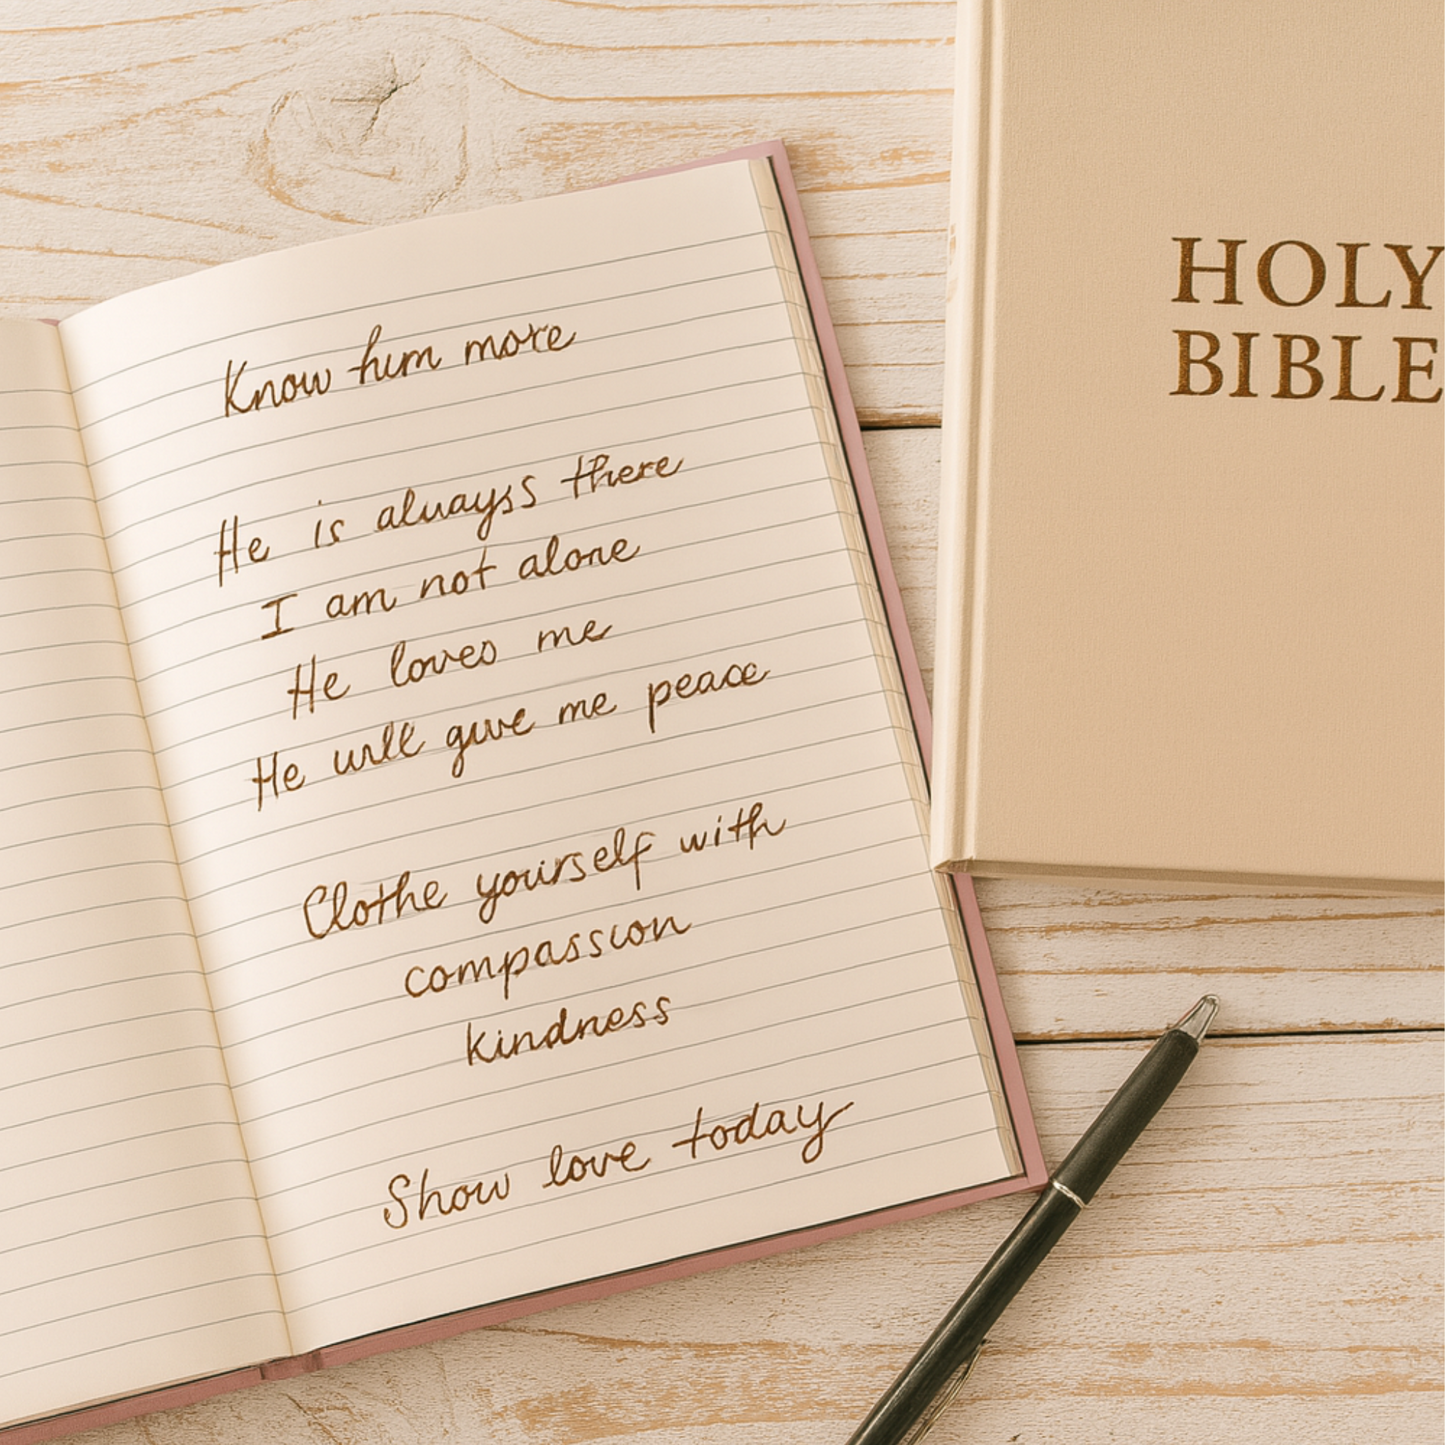 Know him more
He is always there
I am not alone
He loves me
He will give me peace
Clothe yourself with
compassion
kindness
Show love today
HOLY
BIBLE